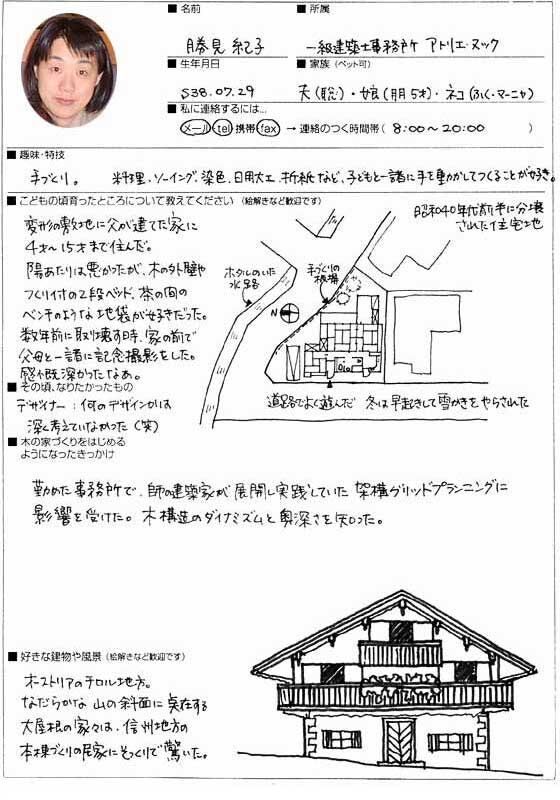 ■ 名前
■ 所属
勝見 紀子
一級建築士事務所 アトリエ・ヌック
■ 生年月日
■ 家族 (ペット可)
S38.07.29
夫(聡)・娘(朋 5才)・ネコ(ふく・マーニャ)
■ 私に連絡するには...
メール・tel 携帯 fax → 連絡のつく時間帯 ( 8:00〜20:00 )
■ 趣味・特技
手づくり。 料理、ソーイング、染色、日用大工、折紙など、子どもと一諸に手を動かしてつくることが好き。
■ こどもの頃育ったところについて教えてください (絵解きなど歓迎です)
変形の敷地に父が建てた家に
4才〜15才まで住んだ。
陽あたりは悪かったが、木の外壁や
つくり付の2段ベッド、茶の間の
ベンチのような地袋が好きだった。
数年前に取り壊す時、家の前で
父母と一諸に記念撮影をした。
感慨深かったなあ。
昭和40年代前半に分譲
された住宅地
ホタルのいた
水路
手づくりの
板塀
N
道路でよく遊んだ 冬は早起きして雪かきをやらされた
■ その頃、なりたかったもの
デザイナー:何のデザインかは
深く考えていなかった (笑)
■ 木の家づくりをはじめる
ようになったきっかけ
勤めた事務所で、師の建築家が展開し実践していた 架構グリッドプランニングに
影響を受けた。木構造のダイナミズムと奥深さを知った。
■ 好きな建物や風景 (絵解きなど歓迎です)
オーストリアのチロル地方。
なだらかな山の斜面に点在する
大屋根の家々は、信州地方の
本棟づくりの民家にそっくりで驚いた。